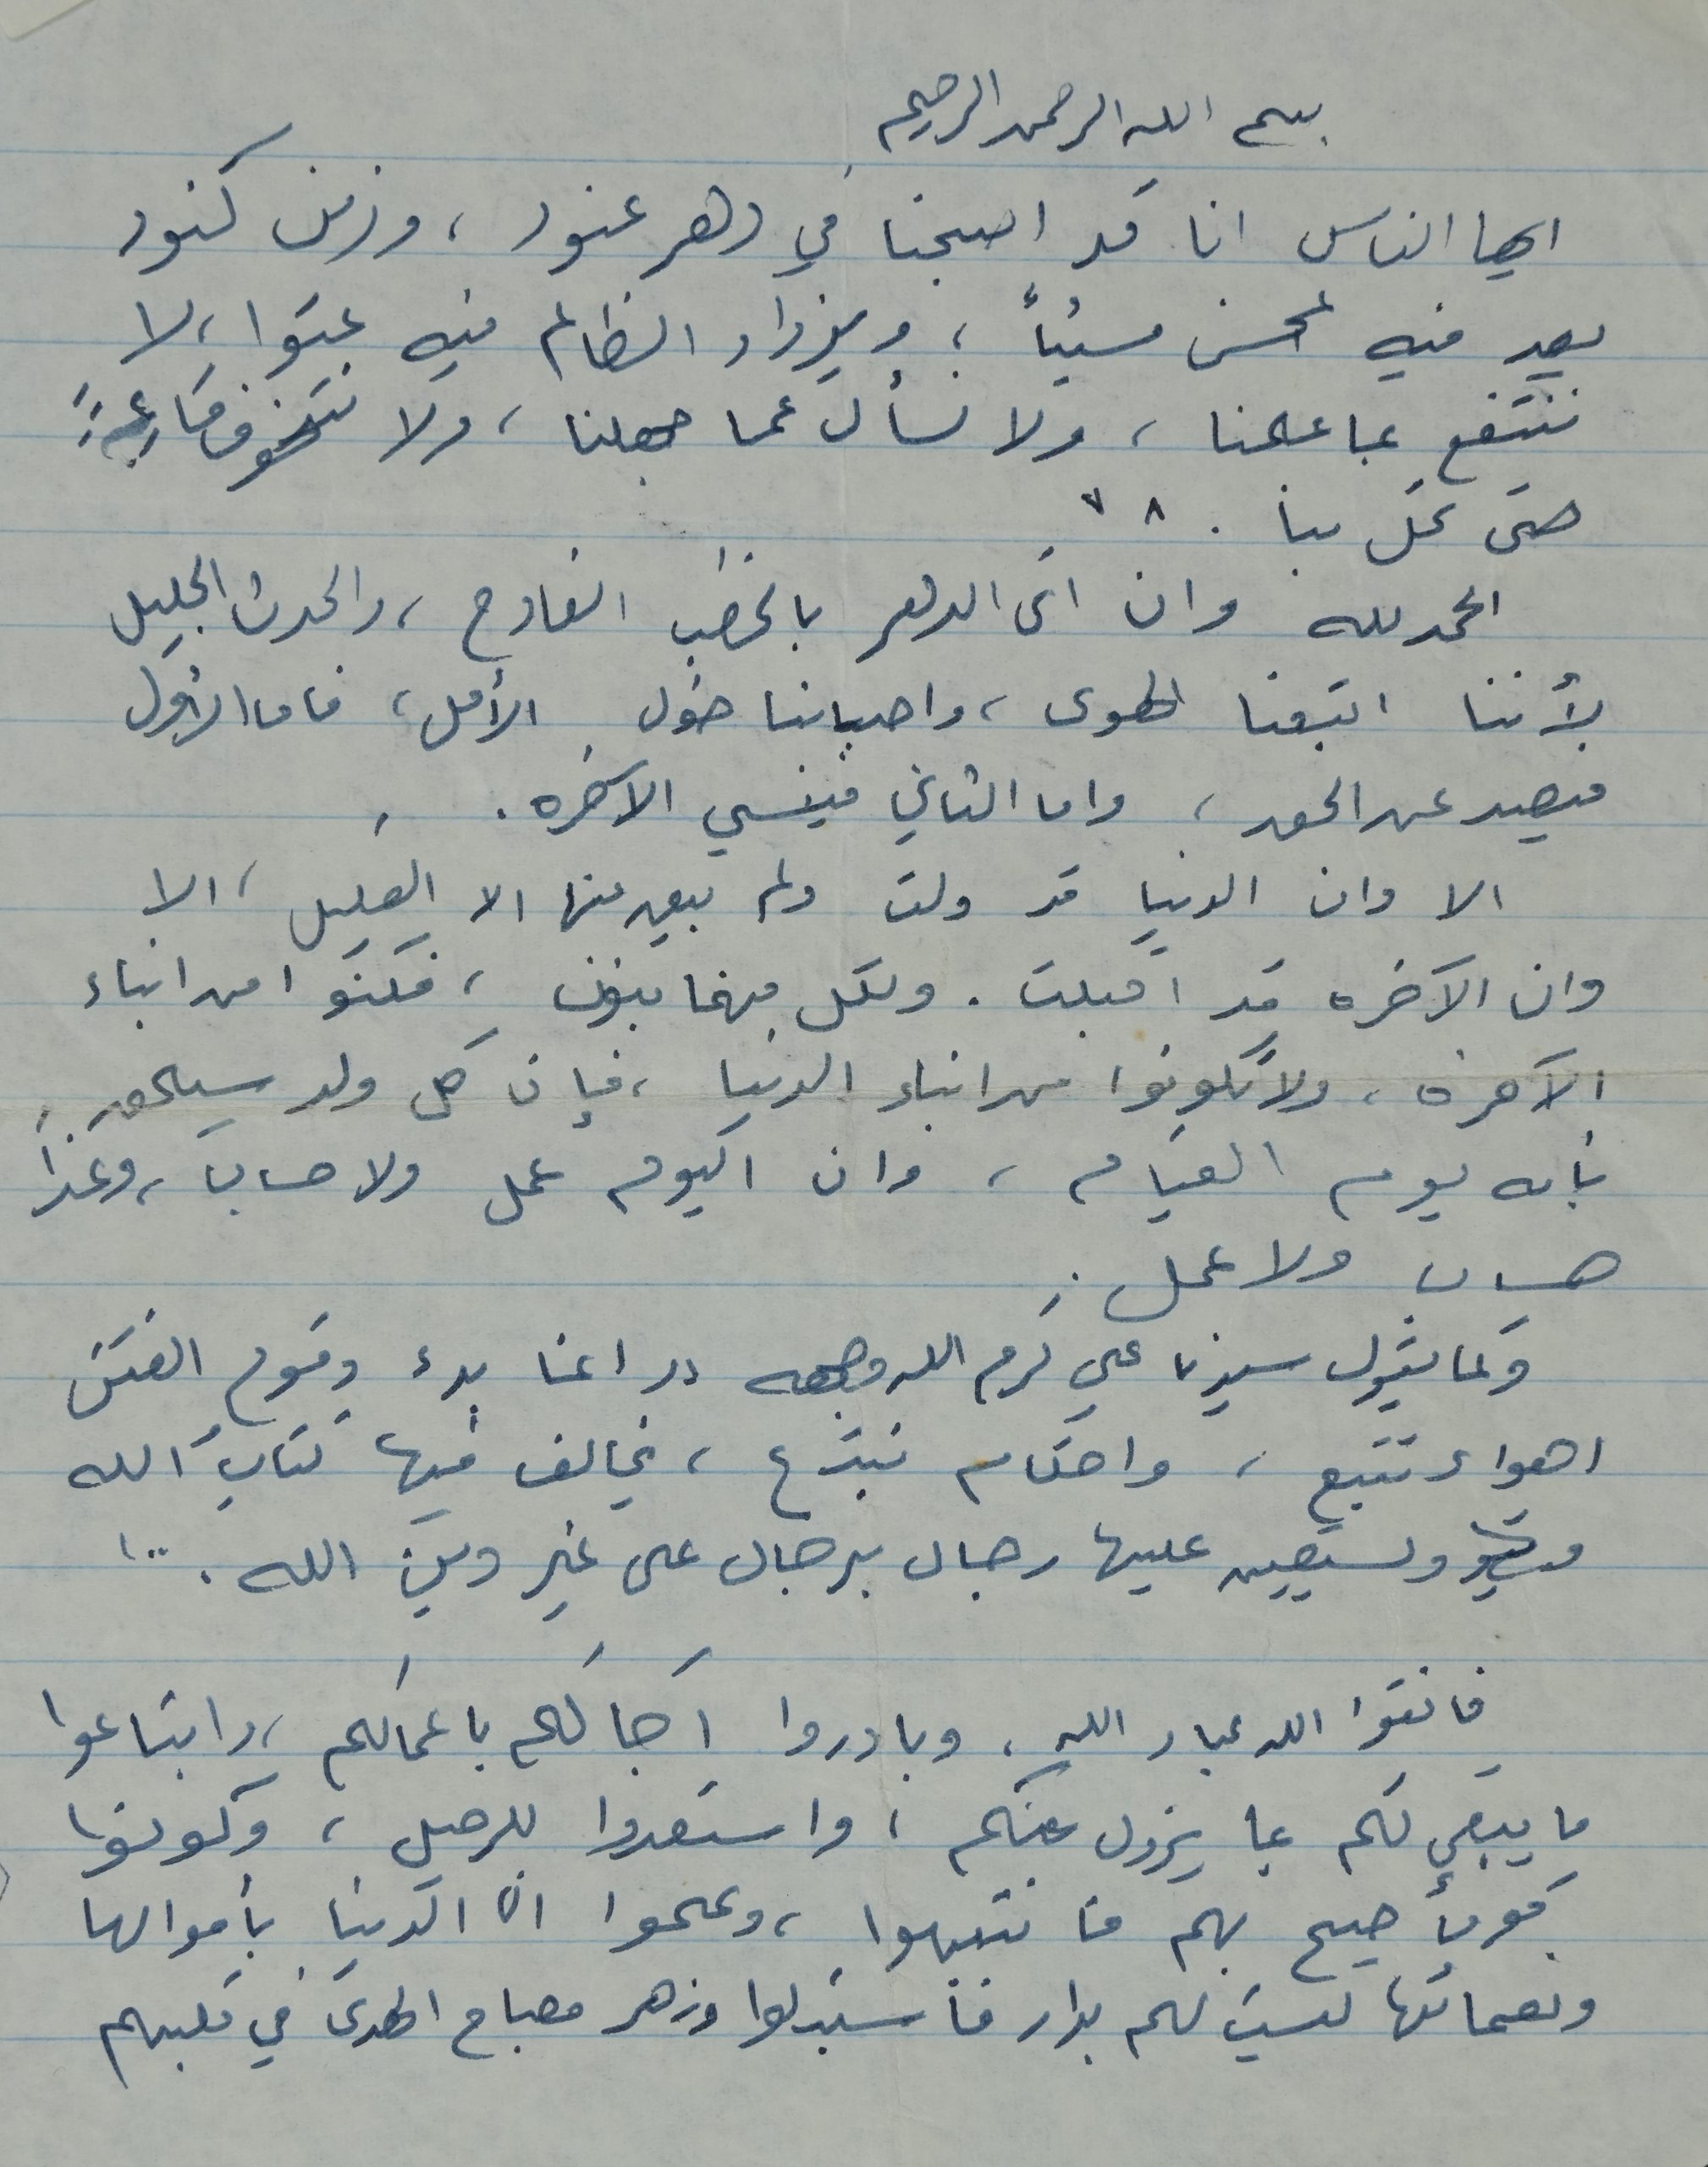 بسم الله الرحمن الرحيم
ايها الناس انا قد اصبحنا في دهر عنود ، وزمن كنود
يعد فيه المحسن مسيئاً ، ويزداد الظالم فيه عتوا ، لا
ننتفع بما علمنا ، ولا نسأل عما جهلنا ، ولا نتخوف قارعةً
حتى تحل بنا .
الحمد لله وان اتى الدهر بالخطب الفادح ، والحدث الجليل
لأننا اتبعنا الهوى ، واصابنا طول الأمل ، فاما الأول
فيصد عن الحق ، واما الثاني فينسي الآخره .
الا وان الدنيا قد ولت ولم يبق منها الا القليل ، الا
وان الآخره قد اقبلت . ولكل منهما بنون ، فكونوا من ابناء
الآخرة ، ولا تكونوا من ابناء الدنيا ، فإن كل ولد سيلحق
بأبيه يوم القيام ، وان اليوم عمل ولا حساب ، وغداً
حساب ولا عمل .
وكما يقول سيدنا علي كرم الله وجهه " انما بدء وقوع الفتن
اهواء تتبع ، واحكام تبتدع ، يخالف فيها كتاب الله
ويستعين عليها رجال برجال على غير دين الله . "
فاتقوا الله عباد الله ، وبادروا آجالكم باعمالكم ، وابتاعوا
ما يبقى لكم بما يزول عنكم ، واستعدوا للرحيل ، وكونوا
قوماً صيح بهم فانتبهوا ، وعلموا ان الدنيا بأموالها
ونعمائها ليست لهم بدار فأستبدلوا وزهر مصباح الهدى في قلبهم